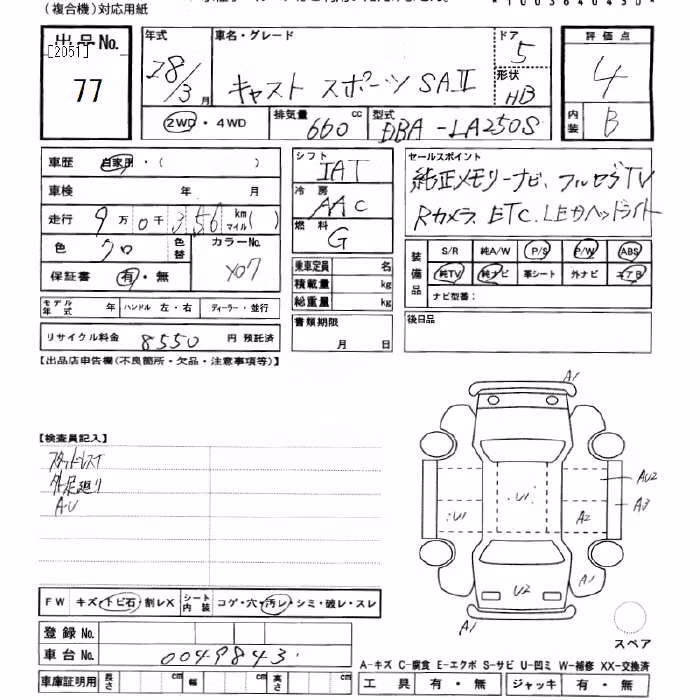 (複合機)対応用紙
出品No.
[2051]
77
年式
28/3月
車名・グレード
キャスト スポーツ SAⅡ
ドア
5
形状
HB
評価点
4
内装
B
2WD・4WD
排気量
660 cc
型式
DBA-LA250S
車歴 自家用・( )
車検 年 月
走行 9万0千356 km マイル( )
色 クロ
色替
カラーNo.
X07
保証書 有・無
モデル年式 年
ハンドル 左・右
ディーラー・並行
リサイクル料金 8550 円 預託済
シフト
IAT
冷房
AAC
燃料
G
乗車定員 名
積載量 kg
総重量 kg
書類期限
月 日
セールスポイント
純正メモリーナビ、フルセグTV
Rカメラ、ETC、LEDヘッドライト
装備品
S/R 純A/W P/S P/W ABS
純TV 純ナビ 革シート 外ナビ エアB
ナビ型番:
後日品
【出品店申告欄(不良箇所・欠品・注意事項等)】
【検査員記入】
スタッドレスT
外足廻り
A・U
A1
AU2
A3
U1
U1
A2
U2
A1
A1
スペア
FW キズ・トビ石・割レX
シート内装 コゲ・穴・汚レ・シミ・破レ・スレ
登録No.
車台No. 0049843
車庫証明用 長さ cm 幅 cm 高さ cm
A-キズ C-腐食 E-エクボ S-サビ U-凹ミ W-補修 XX-交換済
工具 有・無 ジャッキ 有・無